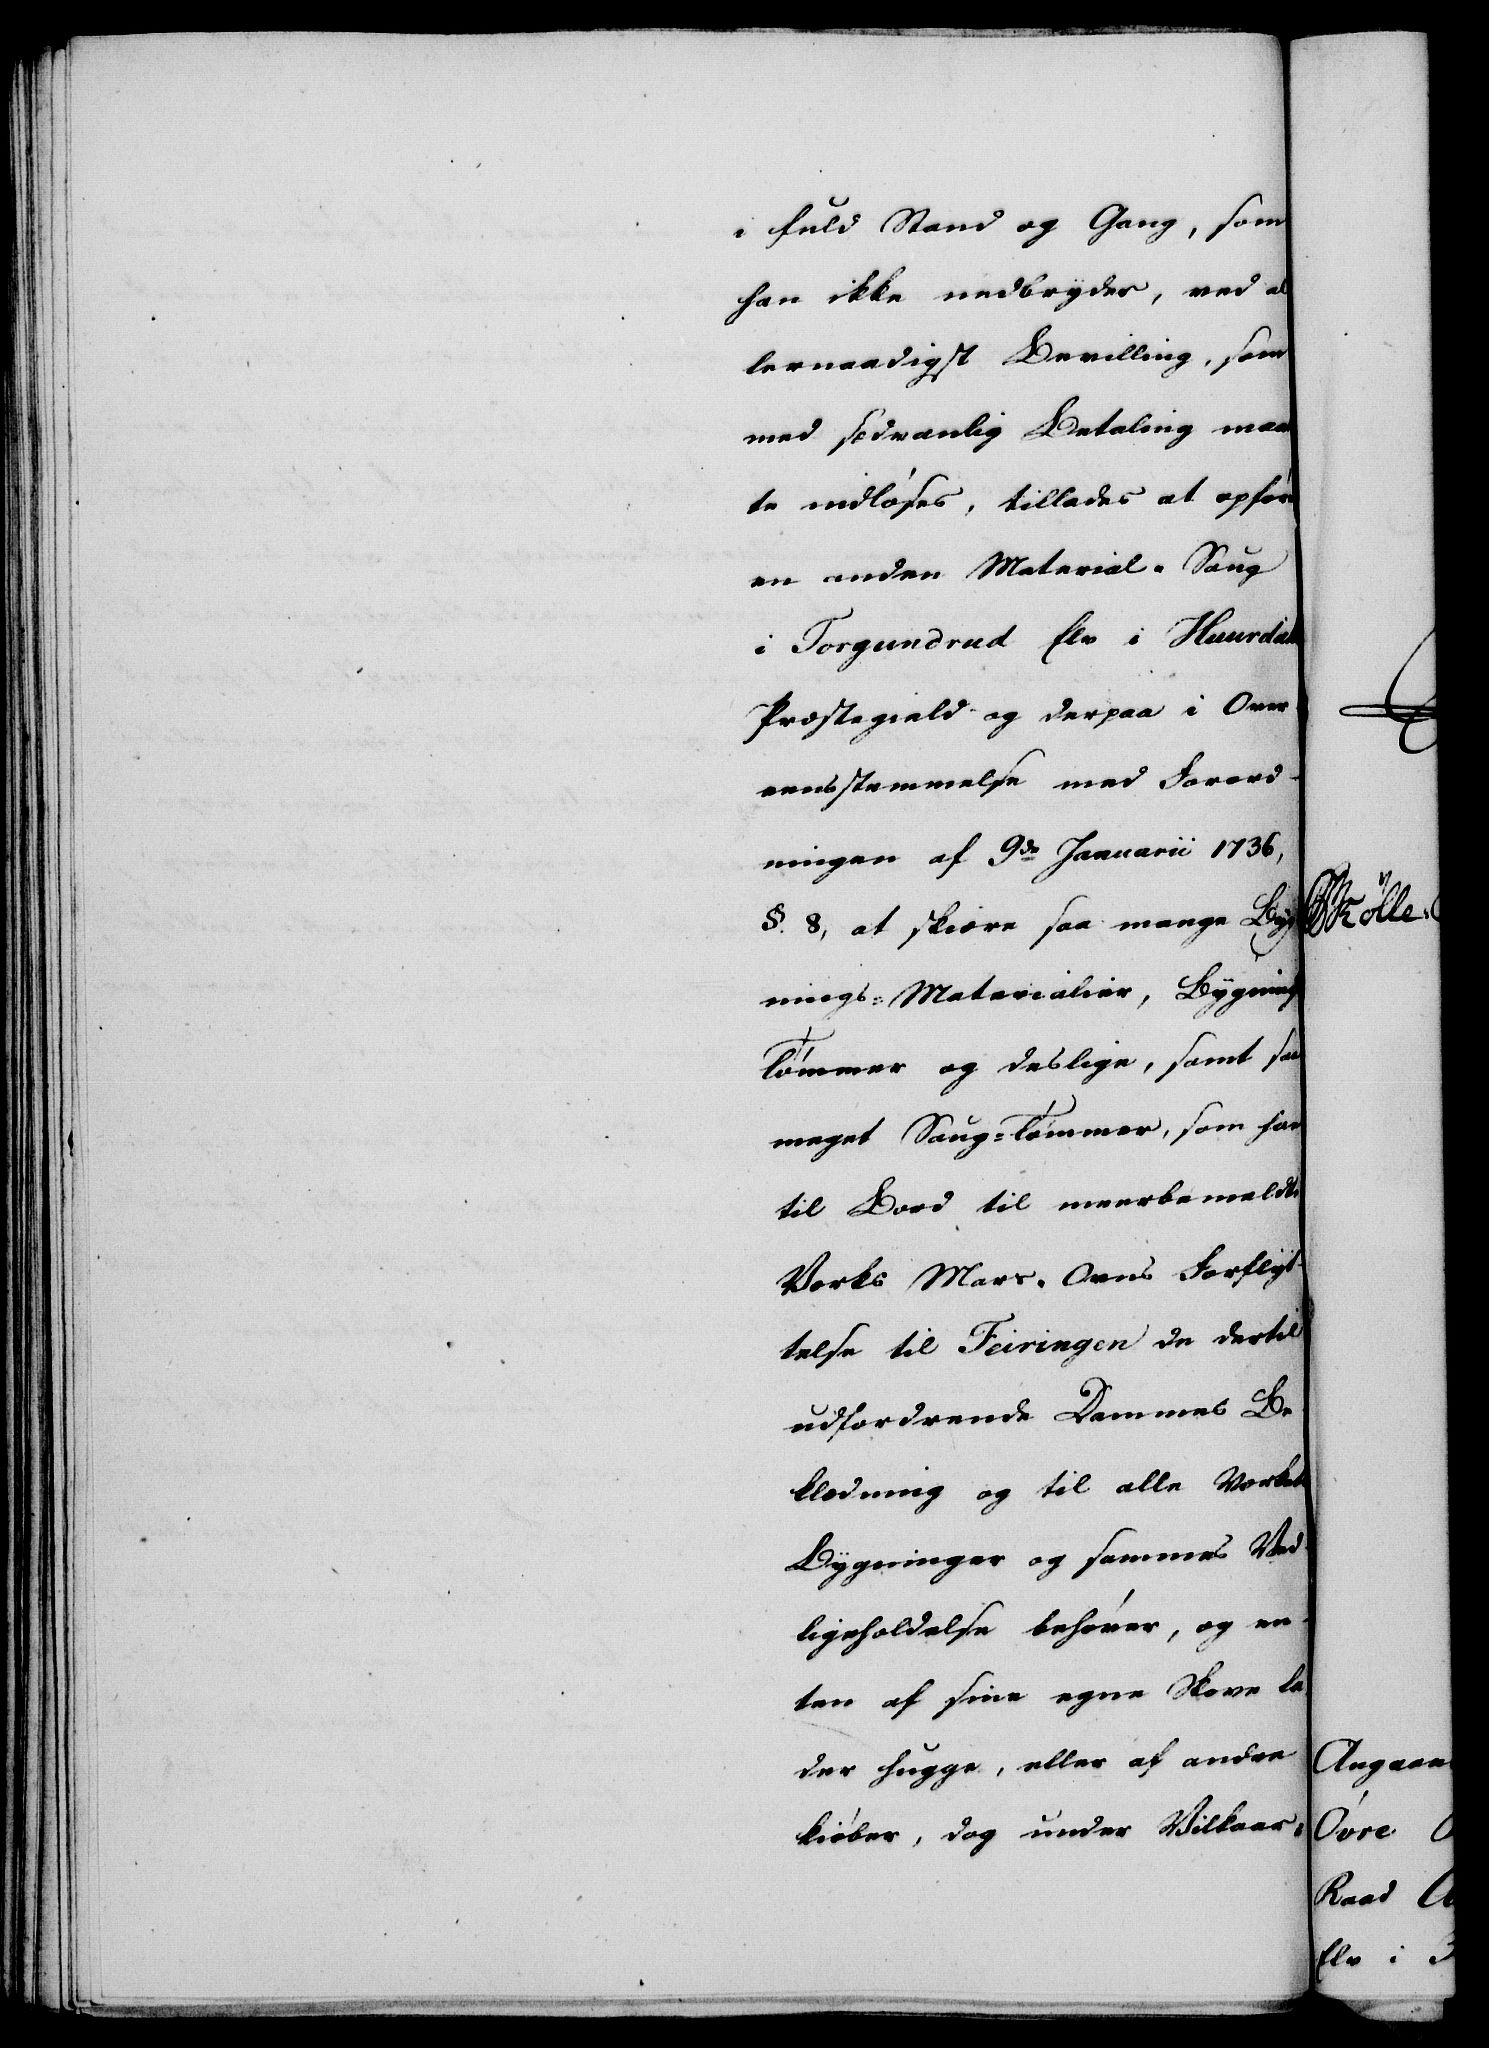 i fuld Stand og Gang, som
han ikke nedbryder, ved al
lernaadigst Bevilling, som
med sædvanlig Betaling maa
te indløses, tillades at opføre
en anden Material-Saug
i Torgundrud Elv i Huurdals
Præstegield og derpaa i Over
eensstemmelse med Forord-
ningen af 9de Januarii 1736,
§. 8, at skiære saa mange Byg
nings-Materialier, Bygnings
Tømmer og deslige, samt saa
meget Saug-Tømmer, som han
til Bord til meerbemeldte
Værks Mars-Ovns Forflyt-
telse til Feiringen de dertil
udfordrende Dammes Be-
klædning og til alle Værkets
Bygninger og sammes Ved-
ligeholdelse behøver, og en-
ten af sine egne Skove la-
der hugge, eller af andre
kiøber, dog under Vilkaar,
Mølle
Angaae
Övre
Raad
Elv i